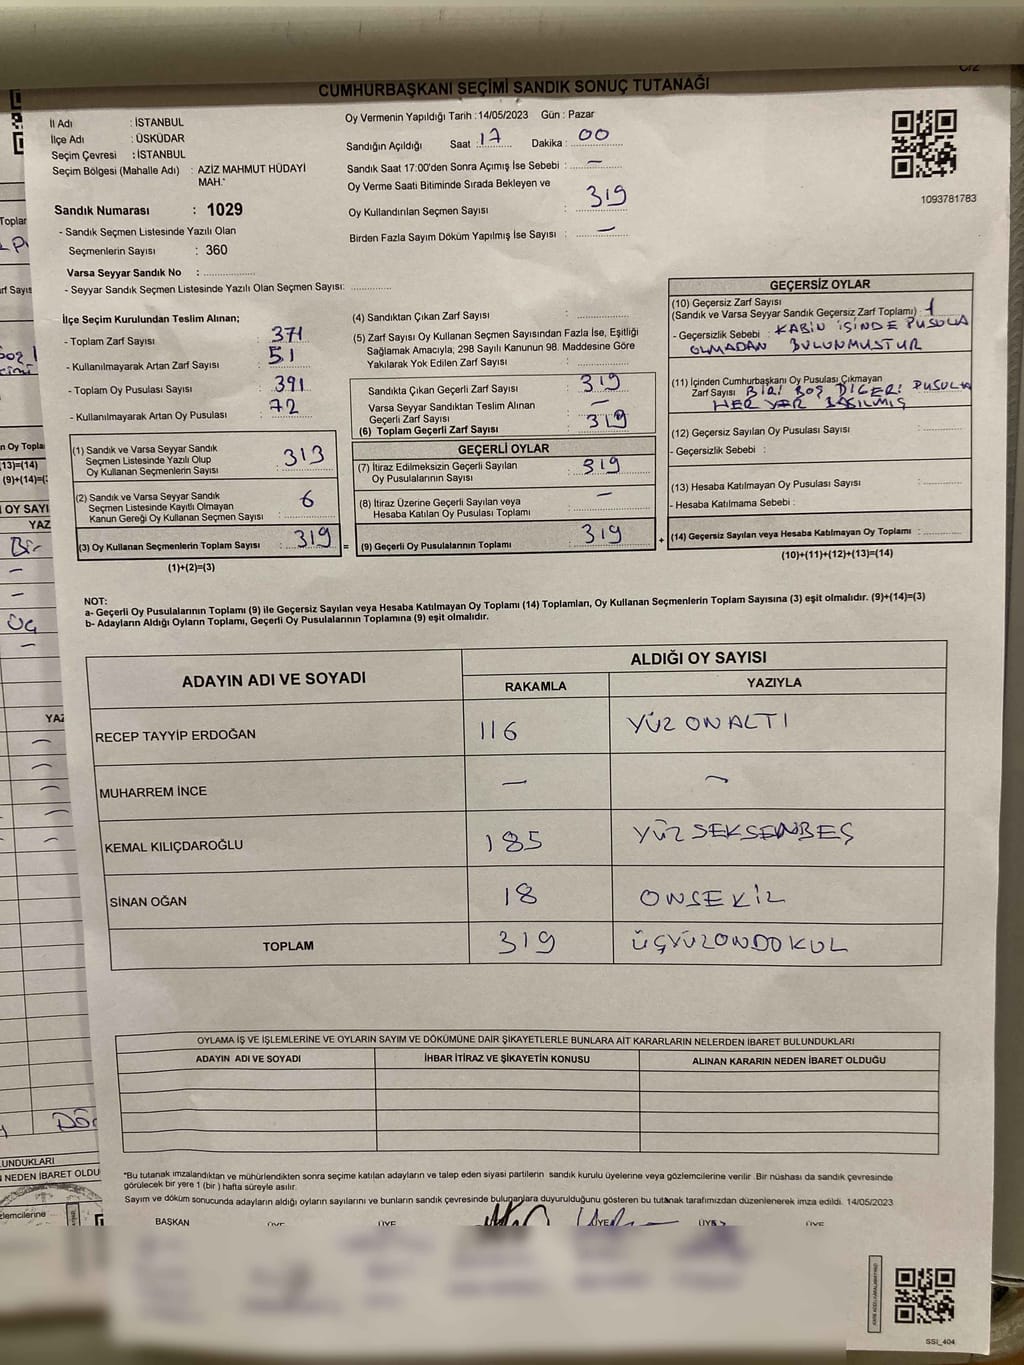 CUMHURBAŞKANI SEÇİMİ SANDIK SONUÇ TUTANAĞI
İl Adı : İSTANBUL
İlçe Adı : ÜSKÜDAR
Seçim Çevresi : İSTANBUL
Seçim Bölgesi (Mahalle Adı) : AZİZ MAHMUT HÜDAYİ
MAH.
Sandık Numarası : 1029
- Sandık Seçmen Listesinde Yazılı Olan
Seçmenlerin Sayısı : 360
Varsa Seyyar Sandık No : ..............
- Seyyar Sandık Seçmen Listesinde Yazılı Olan Seçmen Sayısı: ............
Oy Vermenin Yapıldığı Tarih : 14/05/2023 Gün : Pazar
Sandığın Açıldığı Saat 17 Dakika : 00
Sandık Saat 17:00'den Sonra Açımış İse Sebebi : —
Oy Verme Saati Bitiminde Sırada Bekleyen ve
Oy Kullandırılan Seçmen Sayısı : 319
Birden Fazla Sayım Döküm Yapılmış İse Sayısı : —
1093781783
İlçe Seçim Kurulundan Teslim Alınan;
- Toplam Zarf Sayısı : 371
- Kullanılmayarak Artan Zarf Sayısı : 51
- Toplam Oy Pusulası Sayısı : 391
- Kullanılmayarak Artan Oy Pusulası : 72
(1) Sandık ve Varsa Seyyar Sandık
Seçmen Listesinde Yazılı Olup
Oy Kullanan Seçmenlerin Sayısı : 313
(2) Sandık ve Varsa Seyyar Sandık
Seçmen Listesinde Kayıtlı Olmayan
Kanun Gereği Oy Kullanan Seçmen Sayısı : 6
(3) Oy Kullanan Seçmenlerin Toplam Sayısı : 319
(1)+(2)=(3)
=
(4) Sandıktan Çıkan Zarf Sayısı :
(5) Zarf Sayısı Oy Kullanan Seçmen Sayısından Fazla İse, Eşitliği
Sağlamak Amacıyla, 298 Sayılı Kanunun 98. Maddesine Göre
Yakılarak Yok Edilen Zarf Sayısı :
Sandıkta Çıkan Geçerli Zarf Sayısı : 319
Varsa Seyyar Sandıktan Teslim Alınan
Geçerli Zarf Sayısı : —
(6) Toplam Geçerli Zarf Sayısı : 319
GEÇERLİ OYLAR
(7) İtiraz Edilmeksizin Geçerli Sayılan
Oy Pusulalarının Sayısı : 319
(8) İtiraz Üzerine Geçerli Sayılan veya
Hesaba Katılan Oy Pusulası Toplamı : —
(9) Geçerli Oy Pusulalarının Toplamı : 319
+
GEÇERSİZ OYLAR
(10) Geçersiz Zarf Sayısı
(Sandık ve Varsa Seyyar Sandık Geçersiz Zarf Toplamı) : 1
- Geçersizlik Sebebi : KABİN İSİNDE PUSULA
OLMADAN BULUNMUSTUR
(11) İçinden Cumhurbaşkanı Oy Pusulası Çıkmayan
Zarf Sayısı BİRİ BOŞ DİĞERİ PUSULA
HER YER BASILMIŞ
(12) Geçersiz Sayılan Oy Pusulası Sayısı :
- Geçersizlik Sebebi :
(13) Hesaba Katılmayan Oy Pusulası Sayısı :
- Hesaba Katılmama Sebebi :
(14) Geçersiz Sayılan veya Hesaba Katılmayan Oy Toplamı :
(10)+(11)+(12)+(13)=(14)
NOT:
a- Geçerli Oy Pusulalarının Toplamı (9) ile Geçersiz Sayılan veya Hesaba Katılmayan Oy Toplamı (14) Toplamları, Oy Kullanan Seçmenlerin Toplam Sayısına (3) eşit olmalıdır. (9)+(14)=(3)
b- Adayların Aldığı Oyların Toplamı, Geçerli Oy Pusulalarının Toplamına (9) eşit olmalıdır.
ADAYIN ADI VE SOYADI ALDIĞI OY SAYISI
RAKAMLA YAZIYLA
RECEP TAYYİP ERDOĞAN 116 YÜZ ONALTI
MUHARREM İNCE — —
KEMAL KILIÇDAROĞLU 185 YÜZ SEKSENBEŞ
SİNAN OĞAN 18 ONSEKİZ
TOPLAM 319 ÜÇYÜZONDOKUZ
OYLAMA İŞ VE İŞLEMLERİNE VE OYLARIN SAYIM VE DÖKÜMÜNE DAİR ŞİKAYETLERLE BUNLARA AİT KARARLARIN NELERDEN İBARET BULUNDUKLARI
ADAYIN ADI VE SOYADI İHBAR İTİRAZ VE ŞİKAYETİN KONUSU ALINAN KARARIN NEDEN İBARET OLDUĞU
"Bu tutanak imzalandıktan ve mühürlendikten sonra seçime katılan adayların ve talep eden siyasi partilerin sandık kurulu üyelerine veya gözlemcilerine verilir. Bir nüshası da sandık çevresinde
görülecek bir yere 1 (bir) hafta süreyle asılır.
Sayım ve döküm sonucunda adayların aldığı oyların sayılarını ve bunların sandık çevresinde bulunanlara duyurulduğunu gösteren bu tutanak tarafımızdan düzenlenerek imza edildi. 14/05/2023
BAŞKAN ÜYE ÜYE ÜYE ÜYE ÜYE
SSİ_404